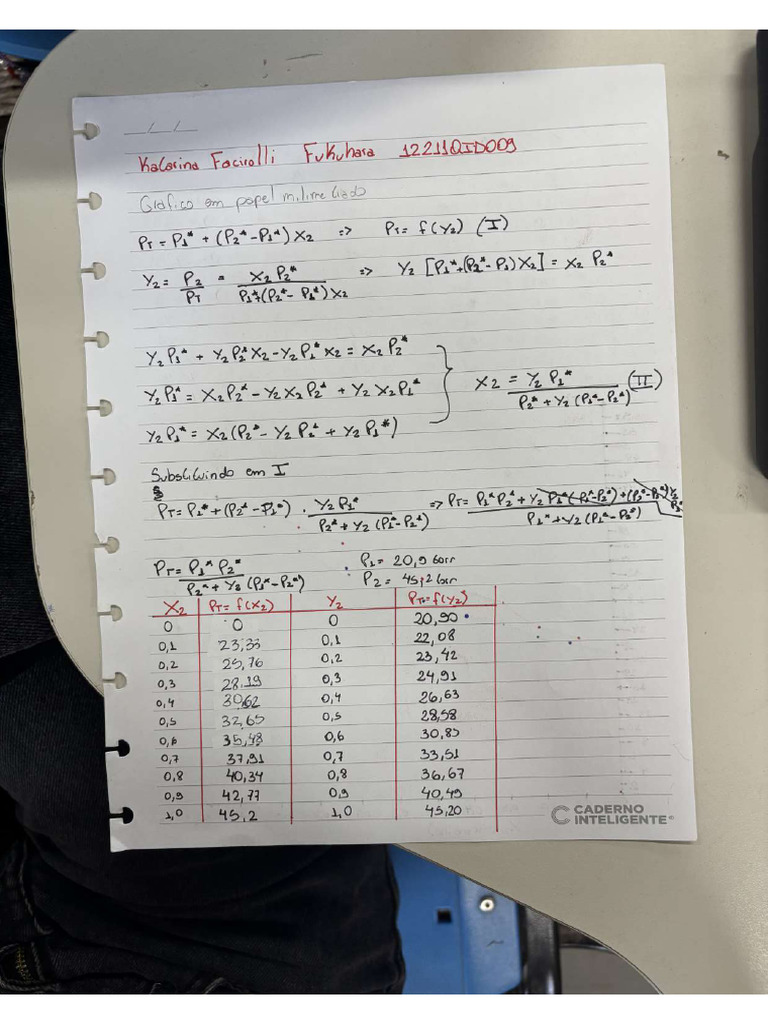 __/__/__
Katarina Facirolli Fukuhara 12211QID009
Gráfico em papel milimetrado
PT = P1* + (P2* - P1*) X2 => PT = f(Y2) (I)
Y2 = P2/PT = X2 P2*/P1*+(P2* - P1*)X2 => Y2 [P1*+(P2* - P1)X2] = X2 P2*
Y2 P1* + Y2 P2* X2 - Y2 P1* X2 = X2 P2*
Y2 P1* = X2 P2* - Y2 X2 P2* + Y2 X2 P1*
X2 = Y2 P1*/P2* + Y2 (P1* - P2*) (II)
Y2 P1* = X2 (P2* - Y2 P2* + Y2 P1*)
Substituindo em I
PT = P1* + (P2* - P1*) . Y2 P1*/P2* + Y2 (P1* - P2*) => PT = P1* P2* + Y2 P1* (P1* - P2*) + (P2* - P1*) Y2 P1*/P1* + Y2 (P1* - P2*)
PT = P1* P2*/P2* + Y2 (P1* - P2*)
P1 = 20,9 torr
P2 = 45,2 torr
X2 PT = f(X2) Y2 PT = f(Y2)
0 0 0 20,90
0,1 23,33 0,1 22,08
0,2 25,76 0,2 23,42
0,3 28,19 0,3 24,91
0,4 30,62 0,4 26,63
0,5 32,65 0,5 28,58
0,6 35,48 0,6 30,83
0,7 37,91 0,7 33,51
0,8 40,34 0,8 36,67
0,9 42,77 0,9 40,49
1,0 45,2 1,0 45,20
CADERNO
INTELIGENTE®